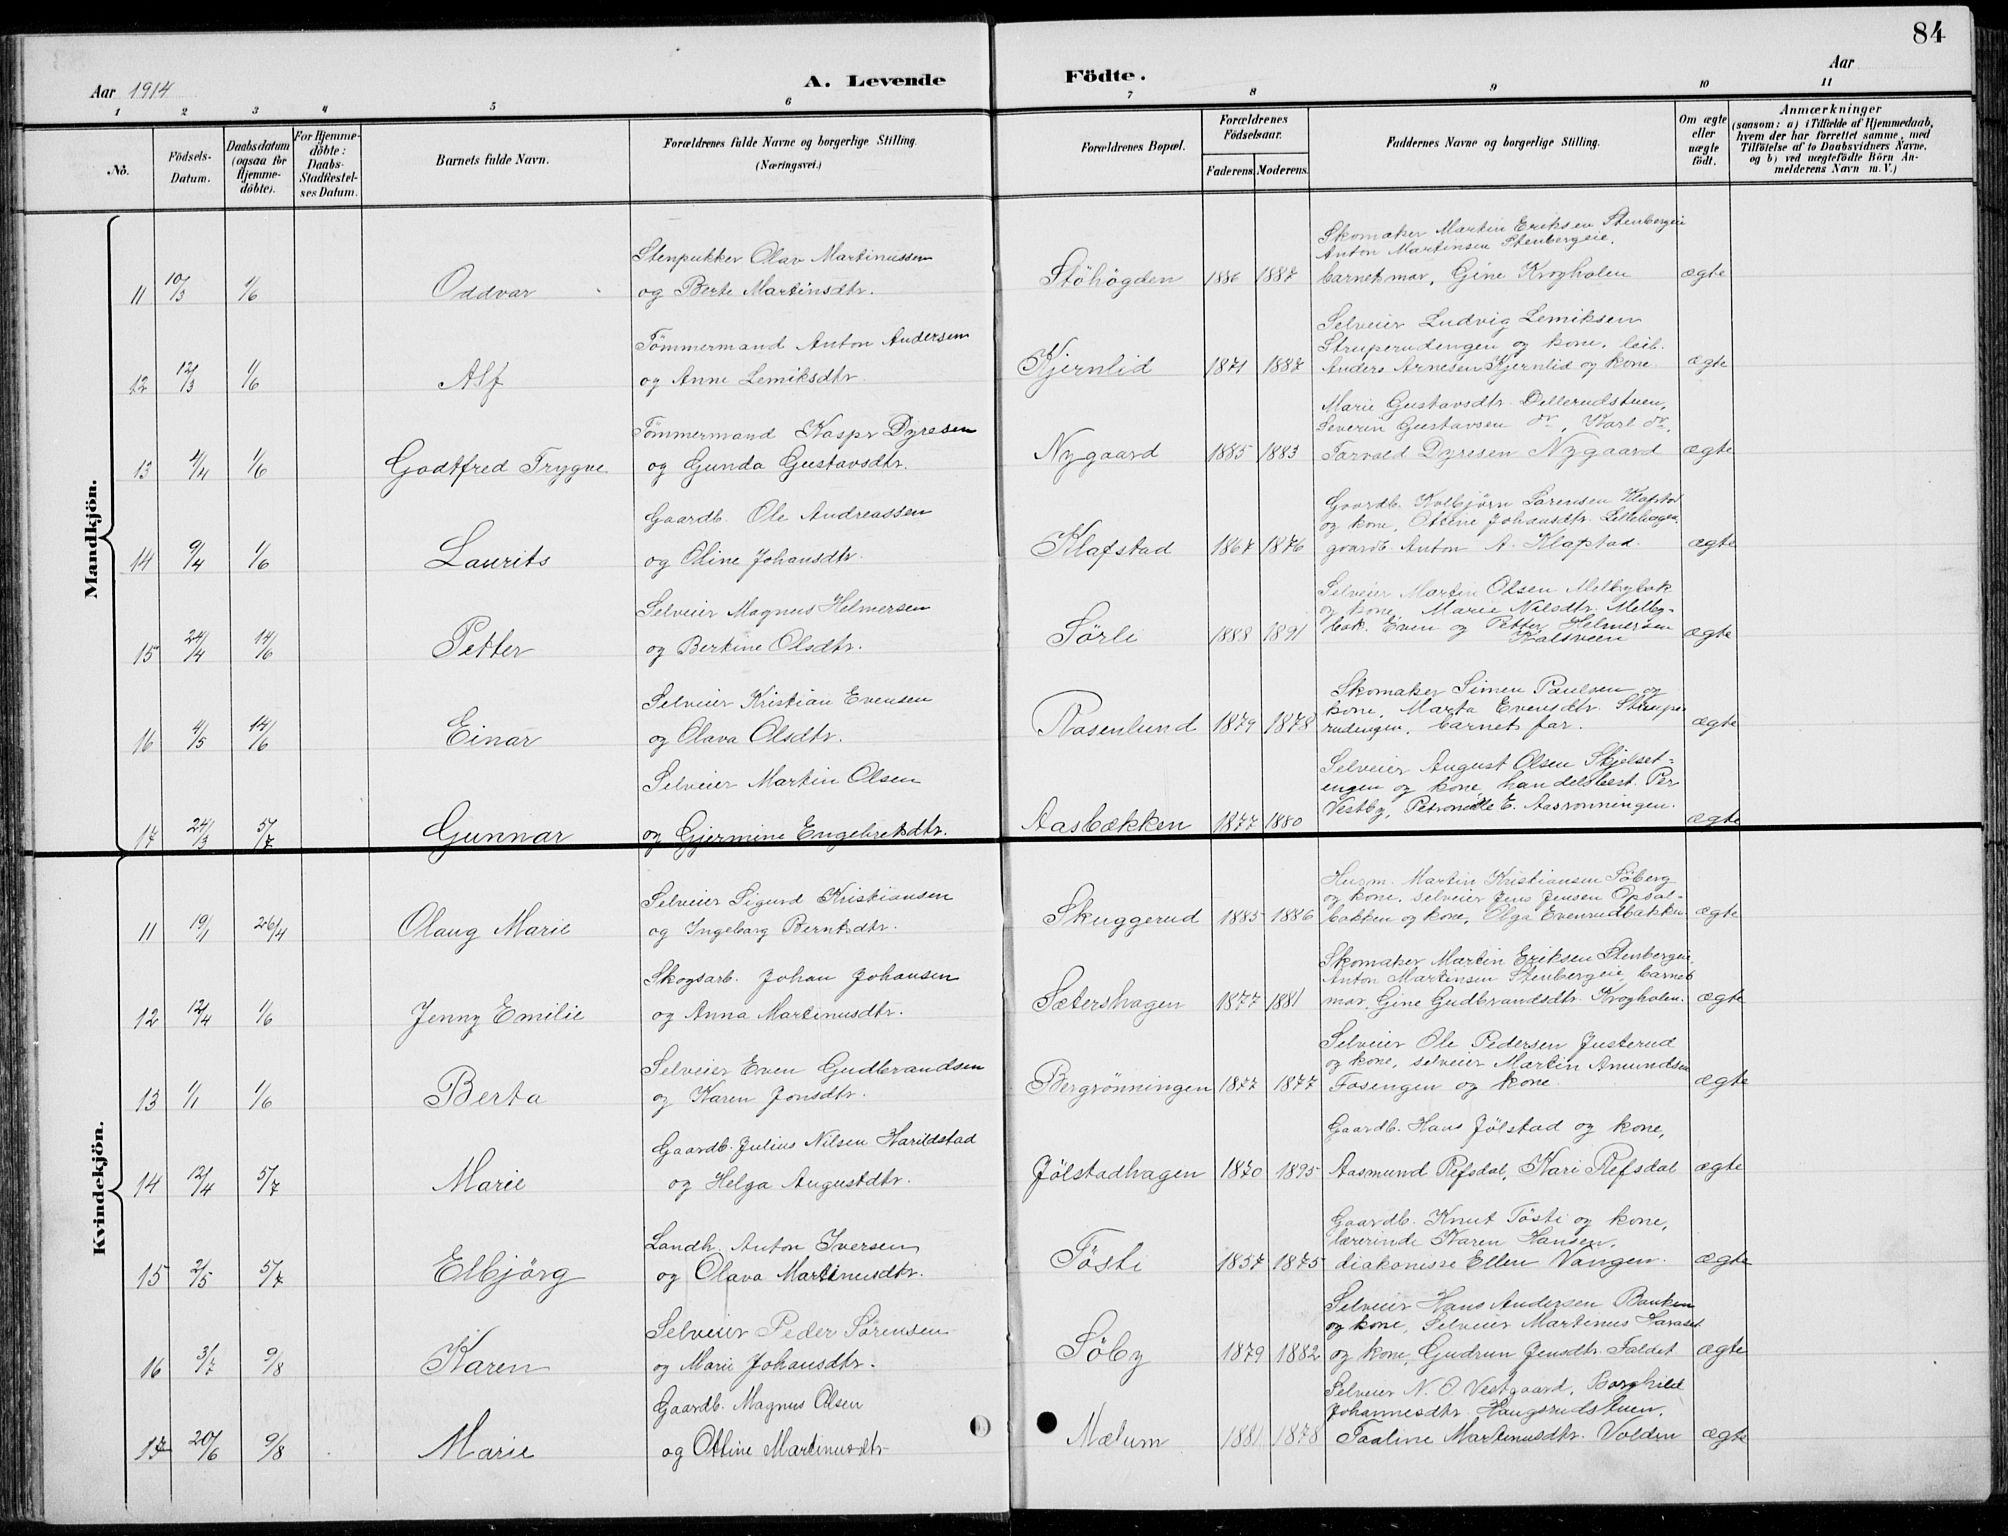 84
Aar 1914
A. Levende Födte.
Aar
1 2 3 4 5 6 7 8 9 10 11
No.
Födsels-Datum.
Daabsdatum (ogsaa for Hjemme-döbte).
For Hjemme-döbte: Daabs-Stadfestel-ses Datum.
Barnets fulde Navn.
Forældrenes fulde Navne og borgerlige Stilling.
(Næringsvei.)
Forældrenes Bopæl.
Forældrenes Födselsaar.
Faderens. Moderens.
Faddernes Navne og borgerlige Stilling.
Om ægte eller uægte födt.
Anmærkninger
(saasom: a) i Tilfælde af Hjemmedaab, hvem der har forrettet samme, med Tilföielse af to Daabsvidners Navne, og b) ved uægtefödte Börn An-melderens Navn m. V.)
Mandkjön.
Skomaker Martin Eriksen Stenbergeie
Stenpukker Olav Martinussen Anton Martinsen Stenbergeie,
11 10/3 1/6 Oddvar og Berte Martinsdtr. Stöhögden 1886 1887 barnet mor, Gine Krogholen ægte
Tömmermand Anton Andersen Selveier Ludvig Lemiksen
Struperudengen og kone,
12 12/3 1/6 Alf og Anne Lemiksdtr. Kjernlid 1871 1887 Anders Arnesen Kjernlid og kone. ægte
Marie Gustavsdtr. Dellerudstuen,
Tömmermand Kaspr Dyresen Severin Gustavsen do, Karl do,
13 4/4 1/6 Godtfred Trygve og Gunda Gustavsdtr. Nygaard 1885 1883 Torvald Dyresen Nygaard ægte
Gaardb. Kolbjörn Sörensen
Gaardb. Ole Andreassen og kone, Otline Johansdtr.
14 9/4 1/6 Laurits og Oline Johansdtr. Klafstad 1867 1876 gaardb. Anton A. Klafstad. ægte
Selveier Martin Olsen Melbybak
Selveier Magnus Helmersen og kone, Marie Nilsdtr. Melby-
15 24/4 14/6 Petter og Bertine Olsdtr. Sörli 1888 1891 bak. Even og Petter Helmersen
Kalsveen ægte
Selveier Kristian Evensen Skomaker Simen Paulsen og
kone, Marta Evensdtr. Strupe-
16 4/5 14/6 Einar og Olava Olsdtr. Rosenlund 1879 1878 rudengen, barnet far. ægte
Selveier Martin Olsen Selveier August Olsen Skjelset-
engen og kone, handelsbest. Per
17 24/3 5/7 Gunnar og Gjermine Engebretsdtr. Aasbækken 1877 1880 Vestby, Petronille E. Aasrönningen. ægte
Kvindekjön.
Husm. Martin Kristiansen Söberg
Selveier Sigurd Kristiansen og kone, selveier Jens Jensen Opsal-
11 19/1 26/4 Olaug Marie og Ingeborg Berntsdtr. Skuggerud 1885 1886 bakken og kone, Olga Evenrudbakken ægte
Skomaker Martin Eriksen Stenbergeie,
Skogsarb. Johan Johansen Anton Martinsen Stenbergeie barnet
12 12/4 1/6 Jenny Emilie og Anna Martinusdtr. Sætershagen 1877 1881 mor, Gine Gudbrandsdtr. Krogholen. ægte
Selveier Ole Pedersen Justerud
Selveier Even Gudbrandsen og kone, selveier Martin Amundsen
13 1/1 1/6 Berta og Karen Jonsdtr. Bergrönningen 1877 1877 Fosengen og kone ægte
Gaardb. Julius Nilsen Harildstad Gaardb. Hans Jölstad og kone,
14 12/4 5/7 Marie og Helga Augustdtr. Jölstadhagen 1870 1895 Aasmund Refsdal, Kari Refsdal ægte
Gaardb. Knut Tösti og kone,
Landh. Anton Iversen lærerinde Karen Hansen,
15 2/5 5/7 Elbjörg og Olava Martinusdtr. Tösti 1857 1875 diakonisse Ellen Vangen. ægte
Selveier Hans Andersen Banken
Selveier Peder Sörensen og kone, Selveier Martinus
16 3/7 9/8 Karen og Marie Johansdtr. Söby 1879 1882 og kone, Gudrun Jensdtr. Faldet ægte
Selveier N. O. Vestgaard, Borghild
Gaardb. Magnus Olsen Johannesdtr. Haugsrudstuen,
17 20/6 9/8 Marie og Ottine Martinusdtr Mælum 1881 1878 Paaline Martinusdtr. Volden ægte